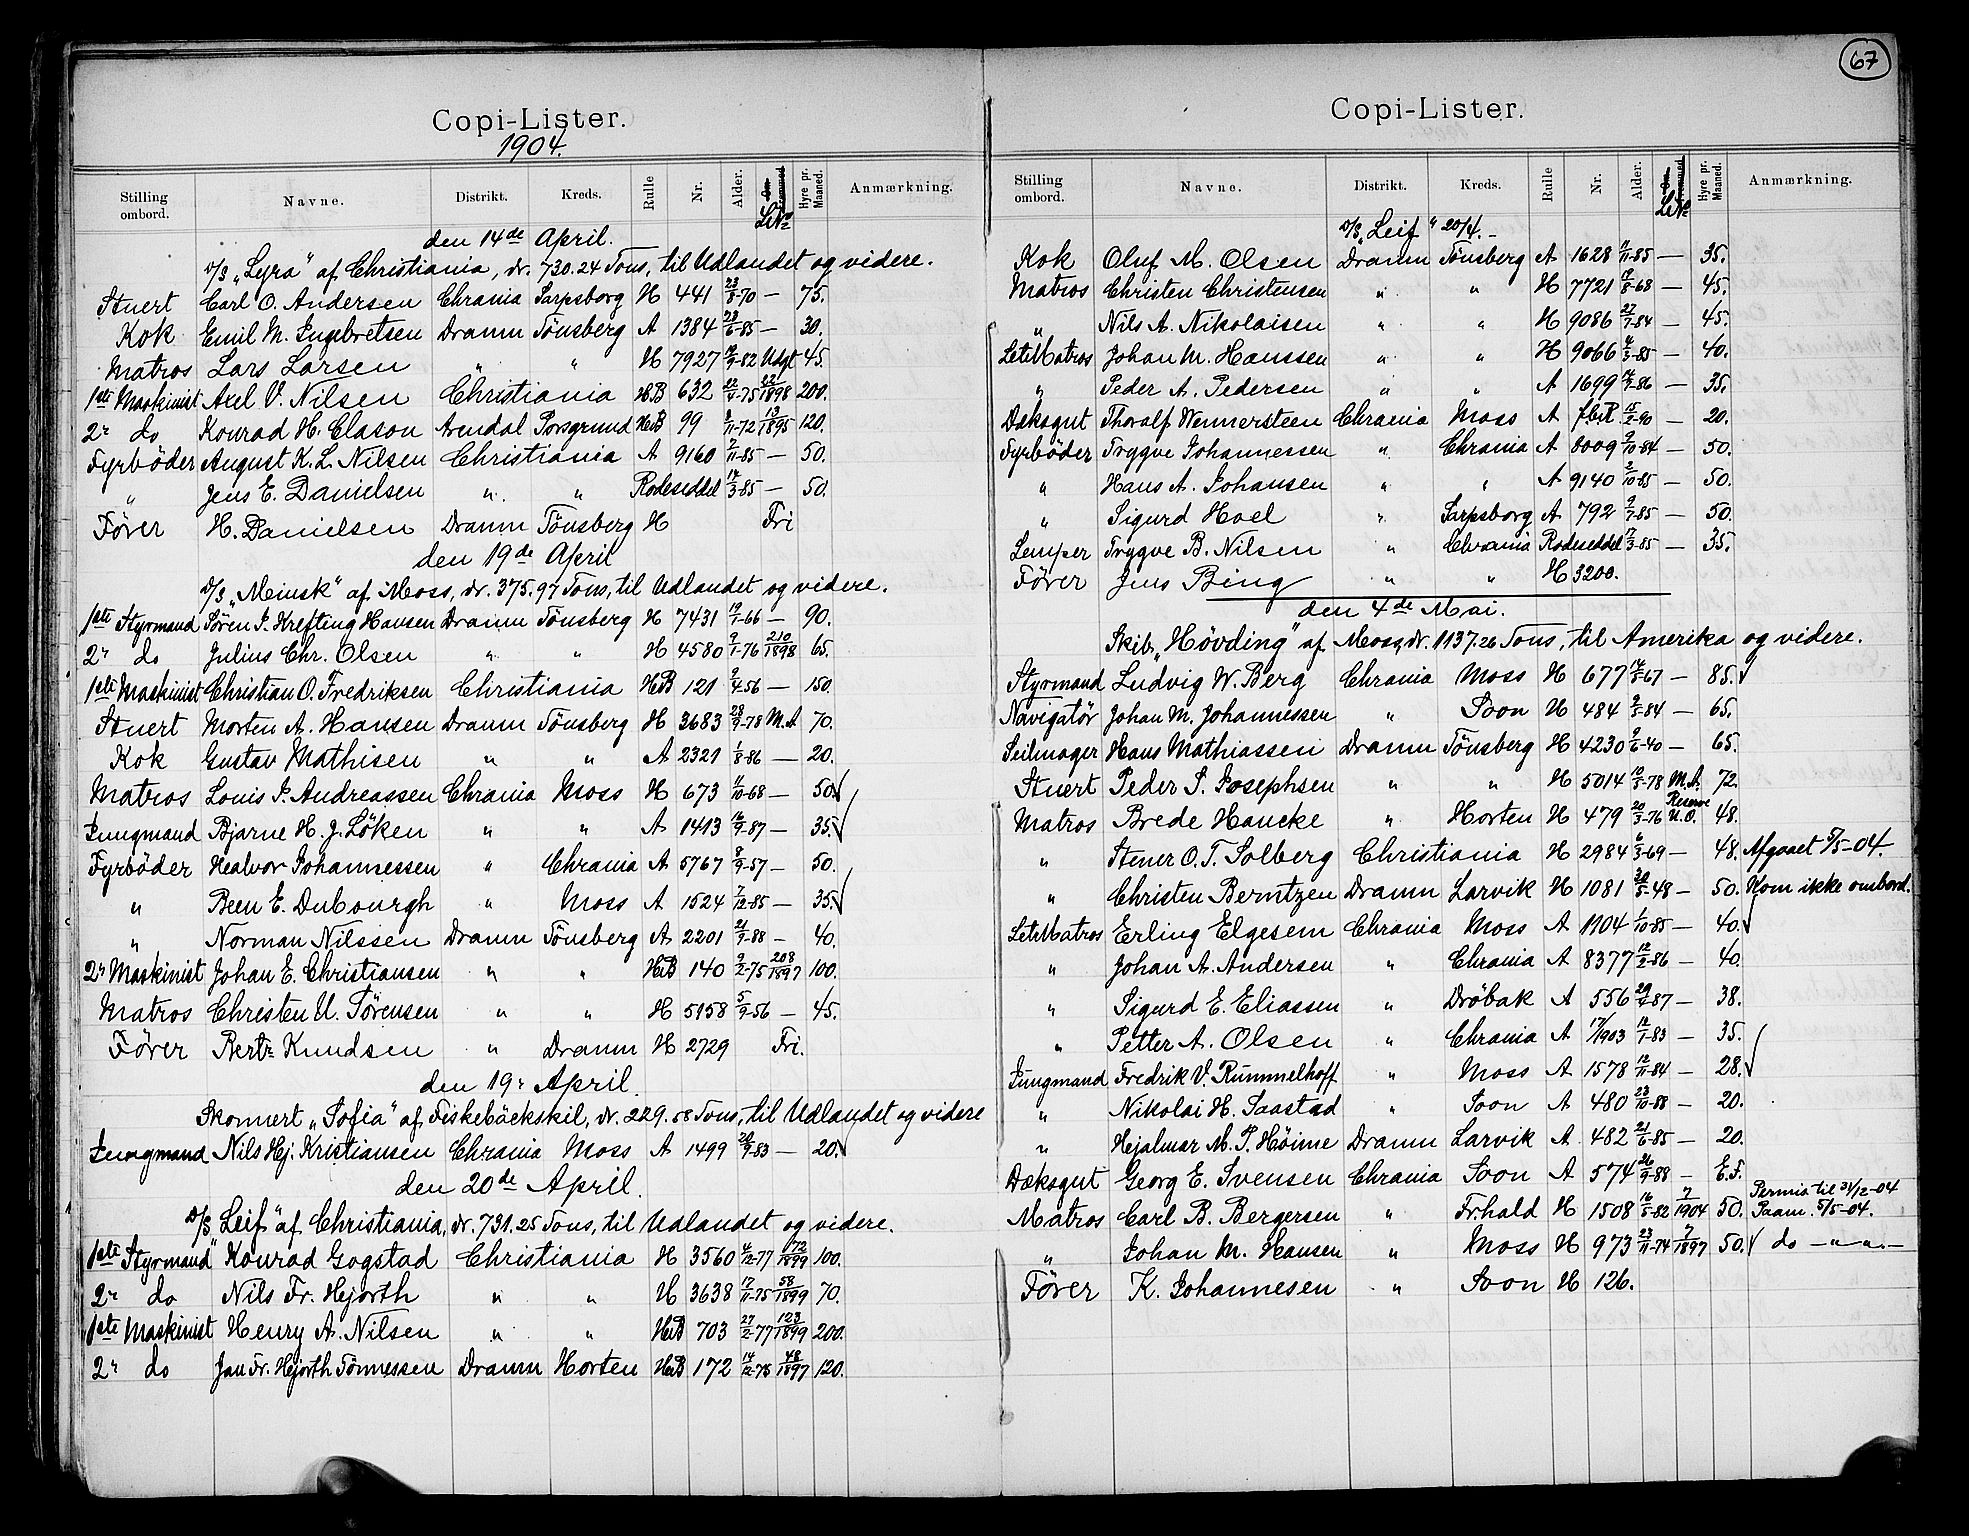 Copi-Lister.
1904.
Stilling ombord. Navne. Distrikt. Kreds. Rulle Nr. Alder. Le No Hyre pr. Maaned. Anmærkning.
den 14de April.
D/S „Lyra" af Christiania, dr. 730.24 Tons, til Udlandet og videre.
Stuert Carl O. Andersen Chrania Sarpsborg H 441 23/8-70 — 75.
Kok Emil M. Ingebretsen Dramn Tönsberg A 1384 28/6-85 — 30.
Matros Lars Larsen " " H 7927 /9-82 Udsgt 45.
1ste Maskinist Axel V. Nilsen Christiania H.B 632 22/4-75 22/1898 200.
2n do Konrad H. Clason Arendal Porsgrund HB 99 /11-72 13/1895 120.
Fyrböder August K. L. Nilsen Christiania A 9160 /11-85 — 50.
" Jens E. Danielsen " " Rodeseddel 14/3-85 — 50.
Förer H. Danielsen Dramn Tönsberg H Fri
den 19de April
D/S „Meiusk" af Moss, dr. 375.97 Tons, til Udlandet og videre.
1ste Styrmand Sören P. Krefting Hansen Dramn Tönsberg H 7431 19/1-66 — 90.
2n do Julius Chr. Olsen " " H 4580 9/1-76 210/1898 65.
1ste Maskinist Christian O. Fredriksen Christiania HB 121 2/4-56 — 150.
Stuert Morten A. Hansen Dramn Tönsberg H 3683 28/9-78 M.A 70.
Kok Gustav Mathisen " " A 2321 1/8-86 — 20.
Matros Louis P. Andreassen Chrania Moss H 673 11/10-68 — 50.
Jungmand Bjarne H. J. Löken " " A 1413 16/9-87 — 35.
Fyrböder Healvor Johannessen " Chrania A 5767 8/9-57 — 50.
" Been E. Dubourgh " Moss A 1524 7/12-85 — 35.
" Norman Nilssen Dramn Tönsberg A 2201 21/9-88 — 40.
2n Maskinist Johan E. Christiansen " " HB 140 9/2-75 208/1897 100.
Matros Christen U. Sörensen " " H 5158 5/9-56 — 45.
Förer Bertr Knudsen " Dramn H 2729 Fri.
den 19n April
Skonnert „Sofia" af Fiskebäckskil, dr. 229.58 Tons, til Udlandet og videre
Jungmand Nils Hj. Kristiansen Chrania Moss A 1499 28/9-83 — 20.
den 20de April.
D/S „Leif" af Christiania, dr. 731.25 Tons, til Udlandet og videre.
1ste Styrmand Konrad Gogstad Christiania H 3560 4/12-77 172/1899 100.
2n do Nils Fr. Hjorth " " H 3638 17/11-75 58/1899 70.
1ste Maskinist Henry A. Nilsen " " HB 703 27/2-77 123/1899 200.
2n do Jan Fr. Hejorth Tönnessen Dramn Horten HB 172 14/12-75 48/1897 120.
67
Copi-Lister.
Stilling ombord. Navne. Distrikt. Kreds. Rulle Nr. Alder. Le No Hyre pr. Maaned. Anmærkning.
D/S „Leif" 20/4.-
Kok Oluf M. Olsen Dramn Tönsberg A 1628 /11-85 — 35.
Matros Christen Christensen " " H 7721 /8-68 — 45.
" Nils A. Nikolaisen " " H 9086 27/7-84 — 45.
LetMatros Johan M. Hanssen " " H 9066 /3-85 — 40.
" Peder A. Pedersen " " A 1699 /9-86 — 35.
Deksgut Thoralf Wennersteen Chrania Moss A 15/2-90 — 20.
Fyrböder Trygve Johannessen " Chrania A 8009 9/10-84 — 50.
" Hans A. Johansen " " A 9140 2/10-85 — 50.
" Sigurd Hoel " Sarpsborg A 792 9/7-85 — 50.
Lemper Trygve B. Nilsen " Chrania Rodeseddel 7/3-85 — 35.
Förer Jens Bing " " H 3200.
den 4de Mai.
Skib „Hövding" af Moss, dr. 1137.26 Tons, til Amerika og videre.
Styrmand Ludvig W. Berg Chrania Moss H 677 14/5-67 — 85.
Navigatör Johan M. Johannessen " Soon H 484 2/5-84 — 65.
Seilmager Hans Mathiassen Dramn Tönsberg H 4230 9/6-40 — 65.
Stuert Peder S. Josephsen " " H 5014 10/5-78 M.A. 72.
Matros Brede Hancke " Horten H 479 20/3-76 Reserve U.O. 48.
" Stener O. T. Solberg Christiania H 2984 6/3-69 — 48. Afgaaet 5/5-04.
" Christen Berntzen Dramn Larvik H 1081 30/5-48 — 50. Kom ikke ombord.
LetMatros Erling Elgesem Chrania Moss A 1704 1/10-85 — 40.
" Johan A. Andersen " Chrania A 8377 12/2-86 — 40.
" Sigurd E. Eliassen " Dröbak A 556 29/4-87 — 38.
" Petter A. Olsen " Chrania A 17/1903 12/1-83 — 35.
Jungmand Fredrik V. Rummelhoff " Moss A 1578 12/11-84 — 28.
" Nikolai H. Saastad " Soon A 480 23/10-88 — 20.
" Hejalmar M. P. Höime Dramn Larvik A 482 21/6-85 — 20.
Dæksgut Georg E. Svensen Chrania Soon A 574 26/9-88 — E.F.
Matros Carl B. Bergersen " Frhald H 1508 16/5-82 7/1904 50. Permis til 31/12-04 Paam. 5/5-04.
" Johan M. Hansen " Moss H 973 23/11-74 7/1897 50. do — " " —
Förer K. Johannesen " Soon H 126.